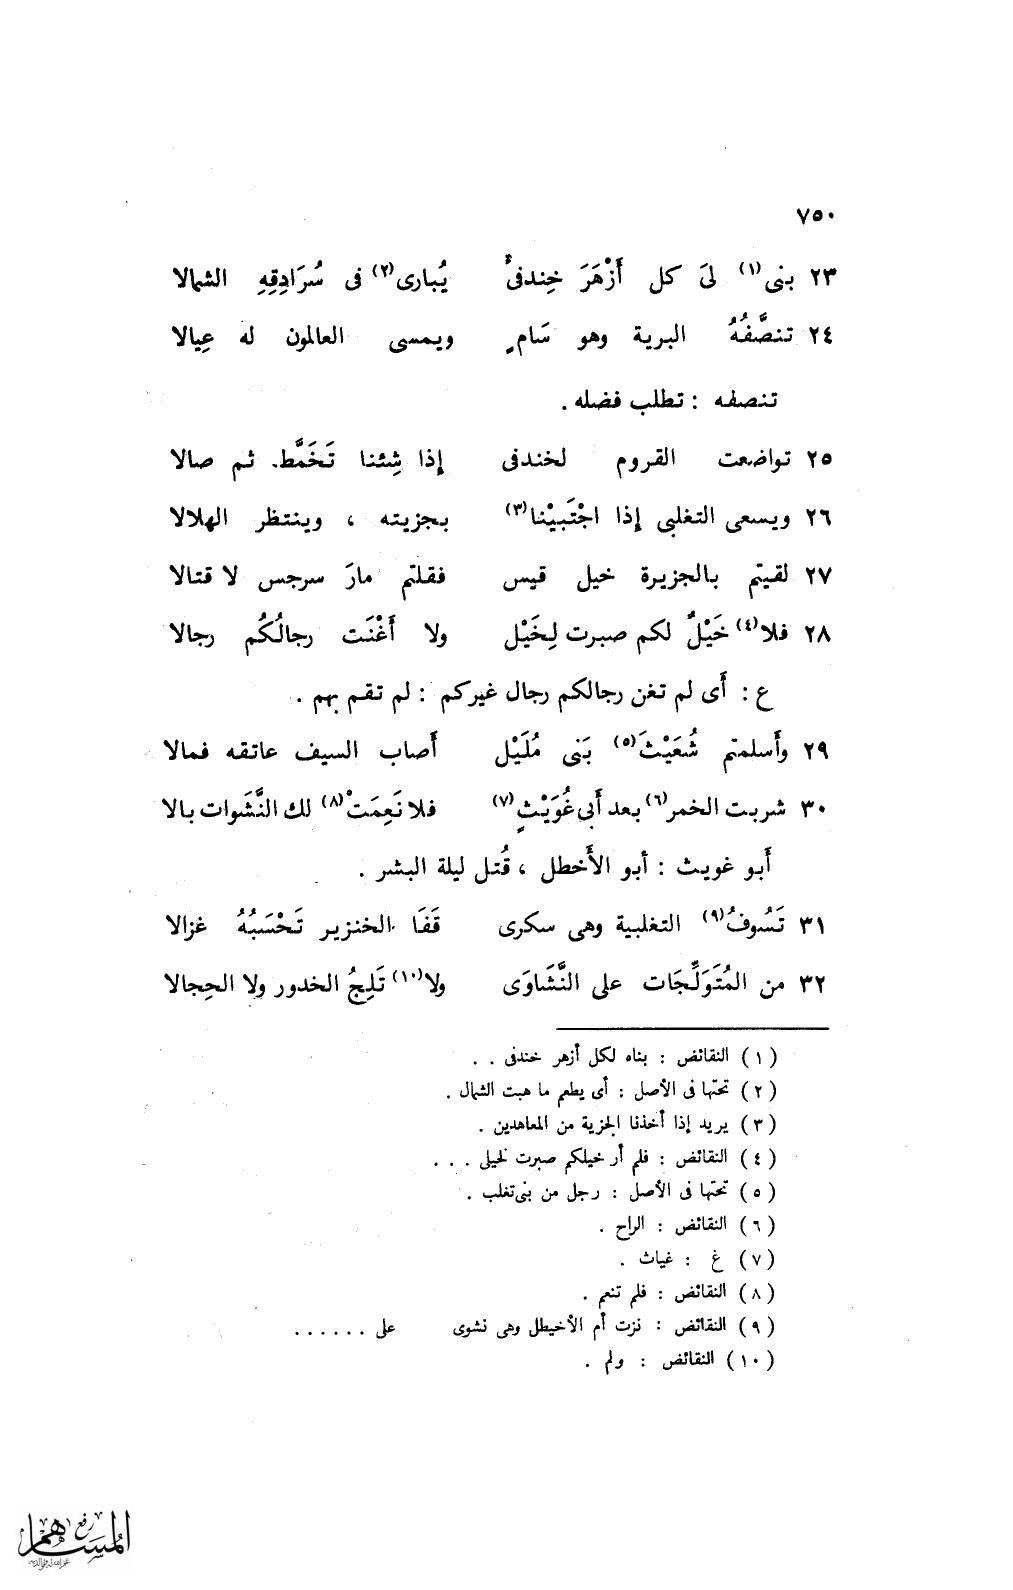 ٧٥٠
٢٣ بنى (١) لىَ كل أَزْهَرَ خِندفىٌّ يُبارى (٢) فى سُرَادِقِهِ الشمالا
٢٤ تنصَّفُهُ البرية وهو سَامٍ ويمسى العالمون له عِيالا
تنصفه : تطلب فضله .
٢٥ تواضعت القروم لخندفى إذا شِئنا تَخَمَّط ثم صالا
٢٦ ويسعى التغلبى إذا اجْتَبَيْنا (٣) بجزيته ، وينتظر الهلالا
٢٧ لقيتم بالجزيرة خيل قيس فقلتم مارَ سرجس لا قتالا
٢٨ فلا (٤) خَيْلٌ لكم صبرت لِخَيْل ولا أَغْنَت رجالُكُم رجالا
ع : أَى لم تغن رجالكم رجال غيركم : لم تقم بهم .
٢٩ وأَسلمتم شُعَيْثَ (٥) بَنى مُلَيْل أَصاب السيف عاتقه فمالا
٣٠ شربت الخمر (٦) بعد أَبى غُوَيْثٍ (٧) فلا نَعِمَتْ (٨) لك النَّشَوات بالا
أَبو غويث : أبو الأَخطل ، قُتل ليلة البشر .
٣١ تَسُوفُ (٩) التغلبية وهى سكرى قَفَا الخنزير تَحْسَبُهُ غزالا
٣٢ من المُتَوَلِّجَات على النَّشَاوَى ولا (١٠) تَلِجُ الخدور ولا الحِجالا
(١) النقائض : بناه لكل أزهر خندفى . .
(٢) تحتها فى الأصل : أى يطعم ما هبت الشمال .
(٣) يريد إذا أخذنا الجزية من المعاهدين .
(٤) النقائض : فلم أر خيلكم صبرت لخيلى . . .
(٥) تحتها فى الأصل : رجل من بنى تغلب .
(٦) النقائض : الراح .
(٧) غ : غياث .
(٨) النقائض : فلم تنعم .
(٩) النقائض : نزت أم الأخيطل وهى نشوى على . . . . . .
(١٠) النقائض : ولم .
رفع
المساهم
غفر الله له ولوالديه